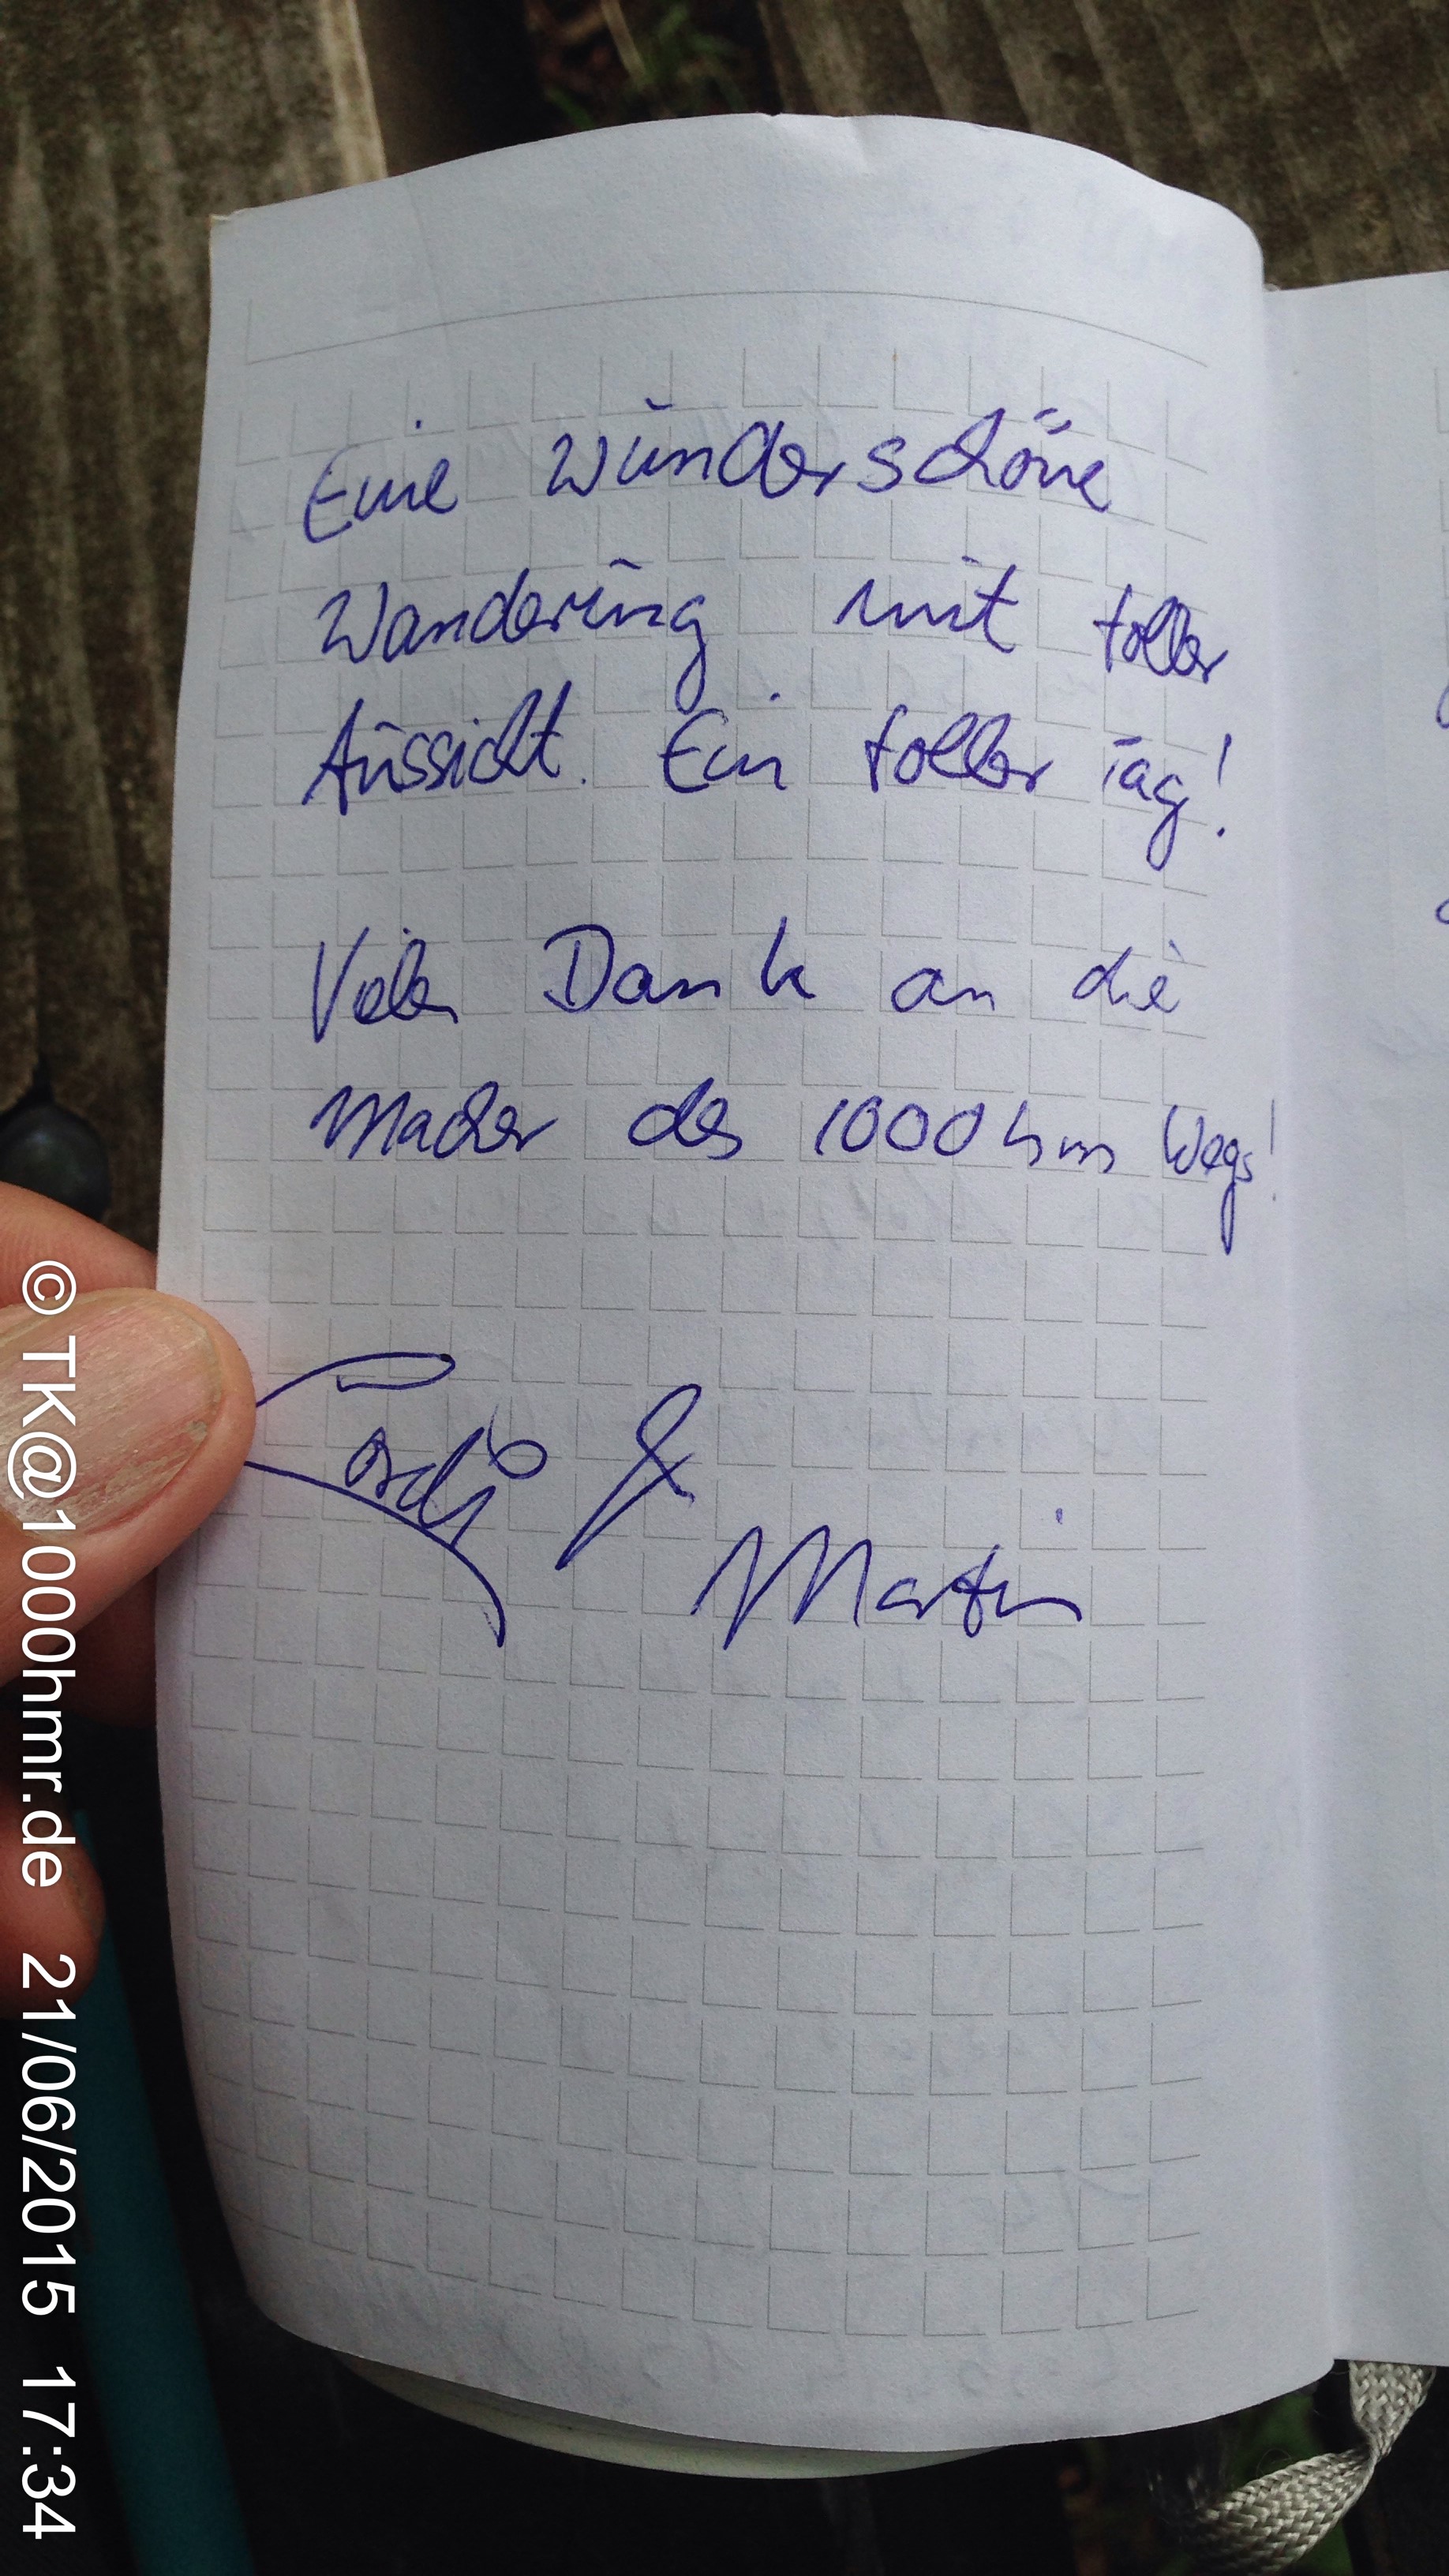 Eine wunderschöne
Wanderung mit toller
Aussicht. Ein toller Tag!
Vielen Dank an die
Macher des 1000 hm Wegs!
&
Martin
© TK@1000hmr.de 21/06/2015 17:34